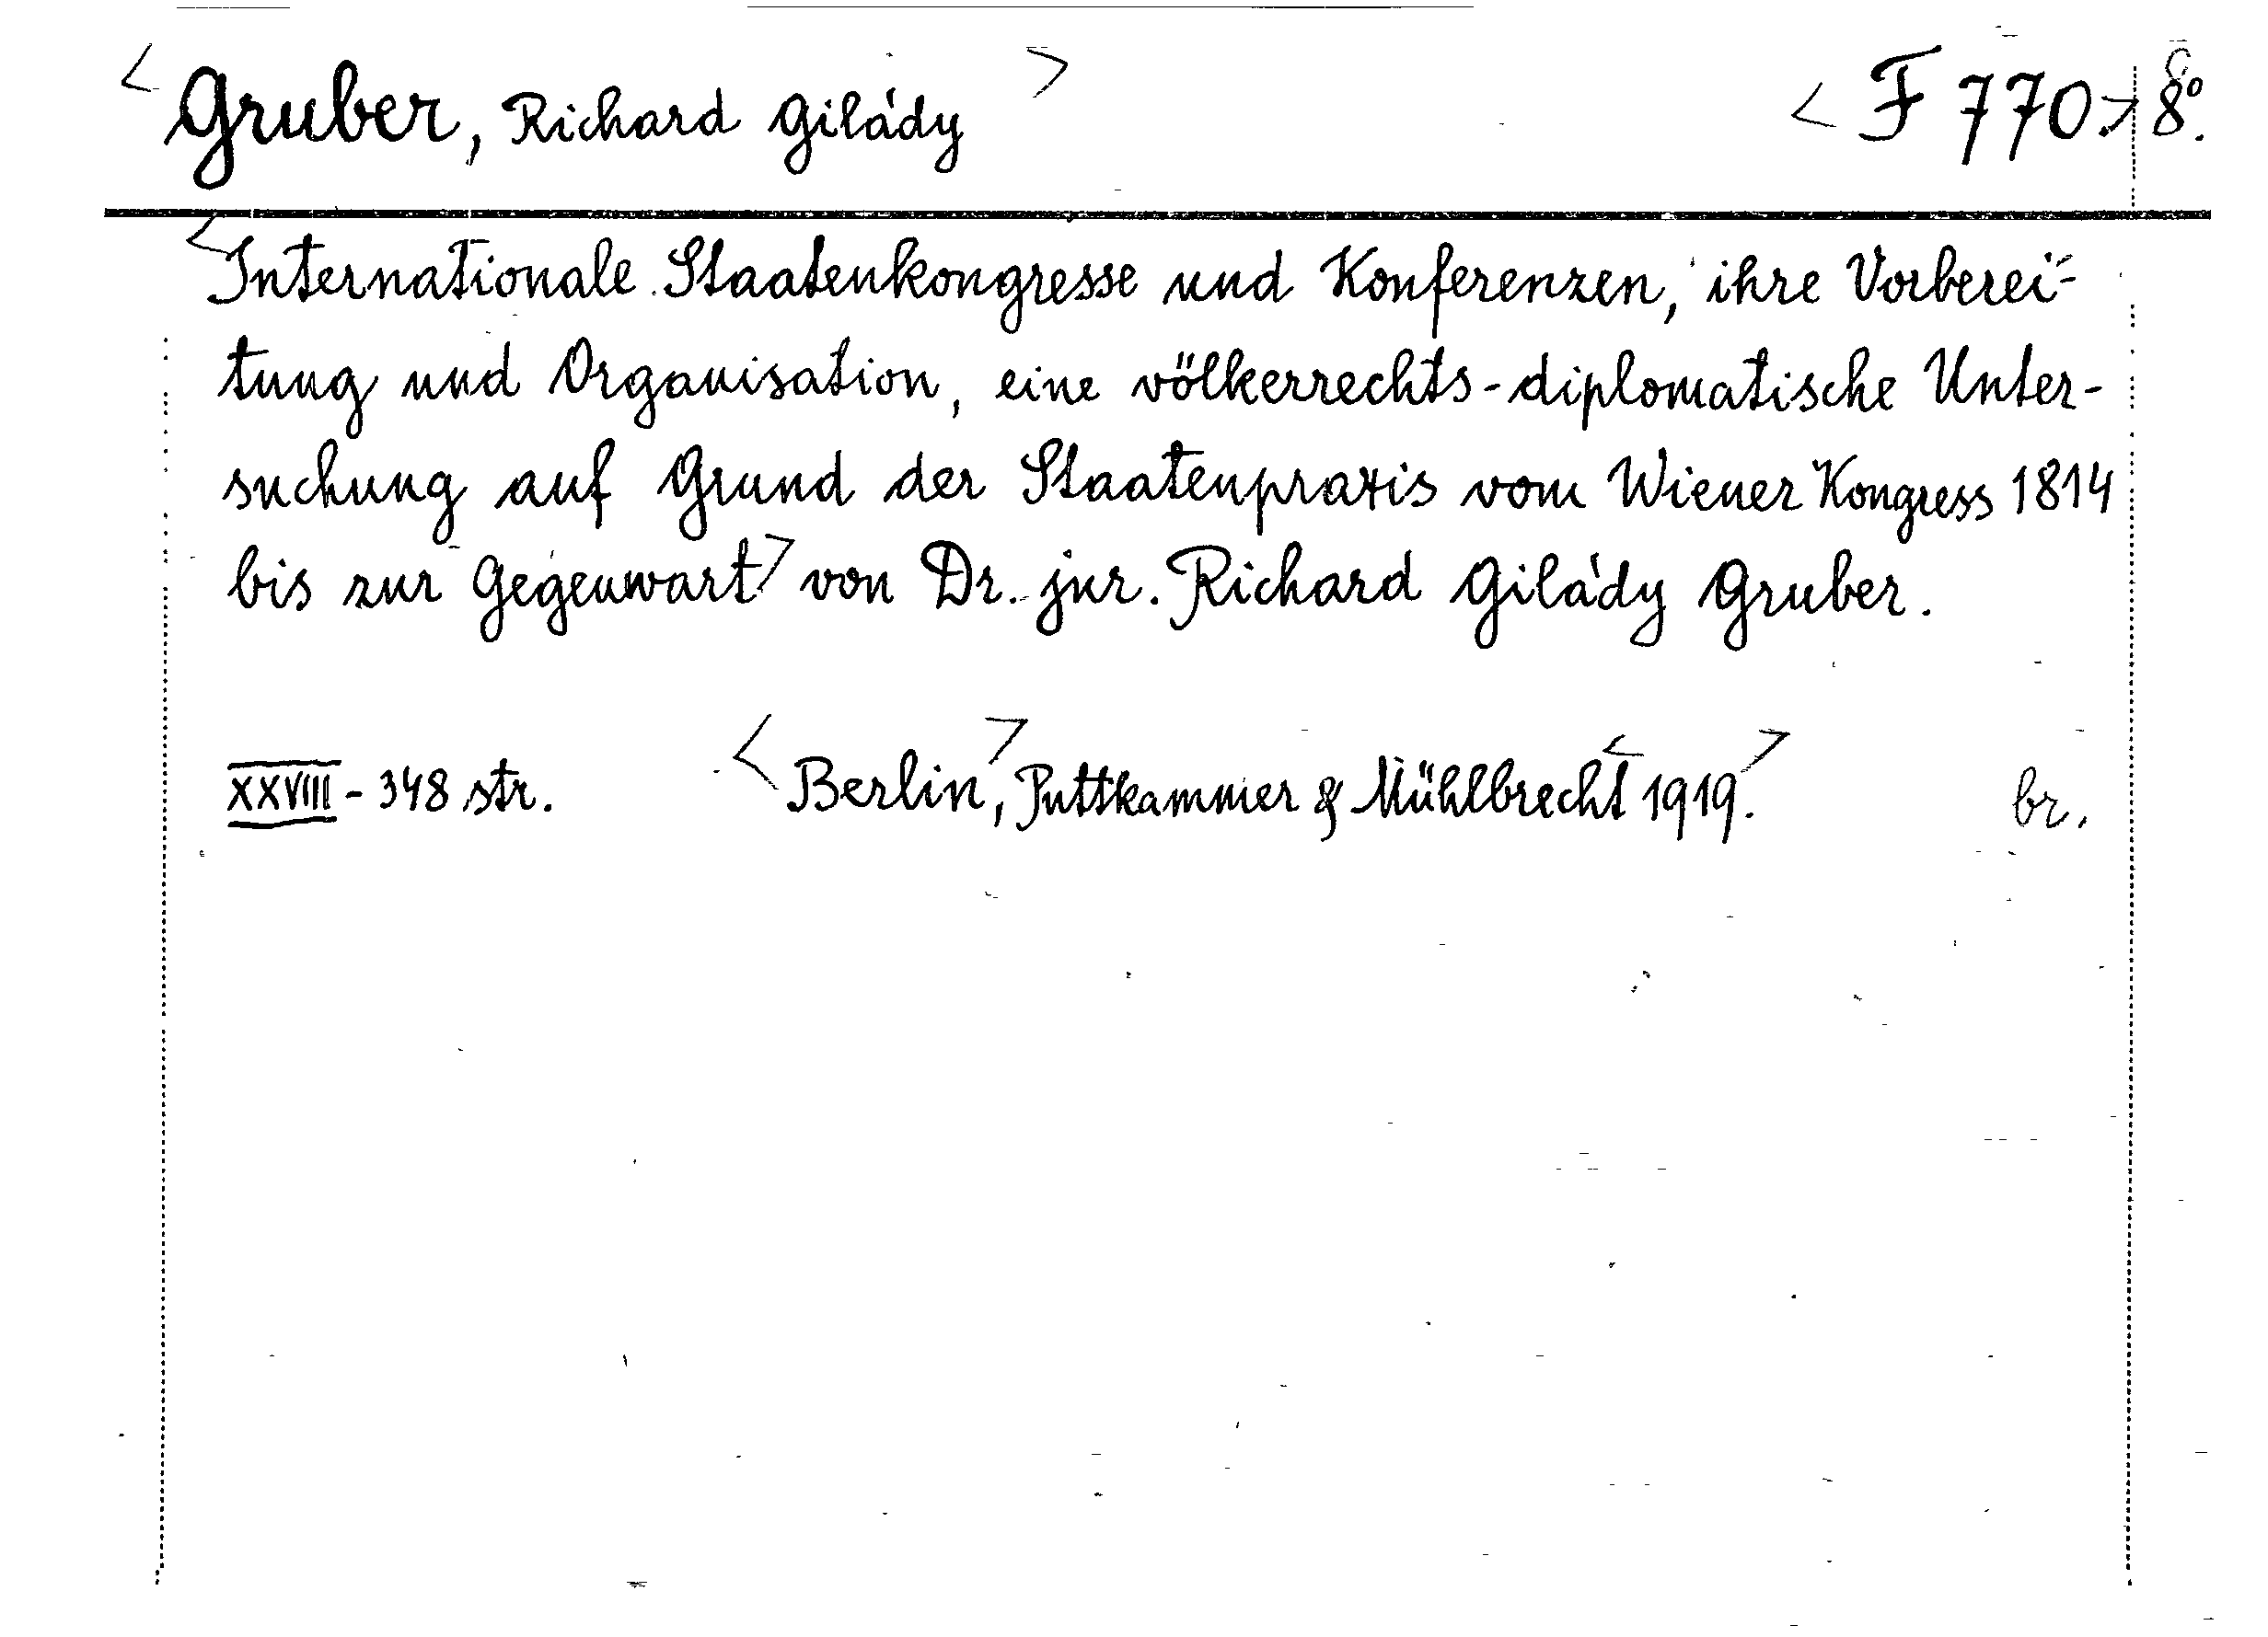 <Gruber, Richard Giládÿ> <F 770.> 8°.
<Internationale Staatenkongresse und Konferenzen, ihre Vorberei-
tung und Organisation, eine völkerrechts-diplomatische Unter-
suchung auf Grund der Staatenpraxis vom Wiener Kongress 1814
bis zur Gegenwart> von Dr. jur. Richard Gilády Gruber.
XXVIII - 348 str. <Berlin>, Puttkammer & Mühlbrecht <1919.> br.